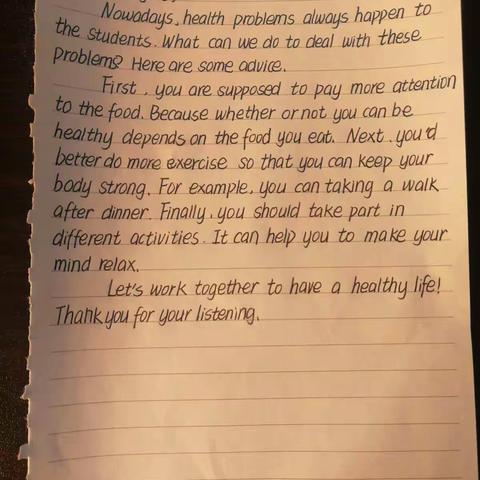 Nowadays, health problems always happen to
the students. What can we do to deal with these
problems? Here are some advice.
First, you are supposed to pay more attention
to the food. Because whether or not you can be
healthy depends on the food you eat. Next, you'd
better do more exercise so that you can keep your
body strong. For example, you can taking a walk
after dinner. Finally, you should take part in
different activities. It can help you to make your
mind relax.
Let's work together to have a healthy life!
Thank you for your listening.